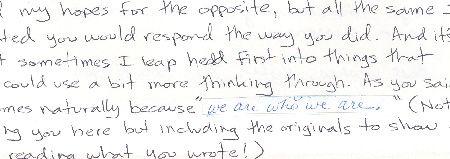 my hopes for the opposite, but all the same
ted you would respond the way you did. And it's
t sometimes I leap head first into things that
could use a bit more thinking through. As you sai
mes naturally because "we are who we are." (Not
ng you here but including the originals to show
reading what you wrote!)